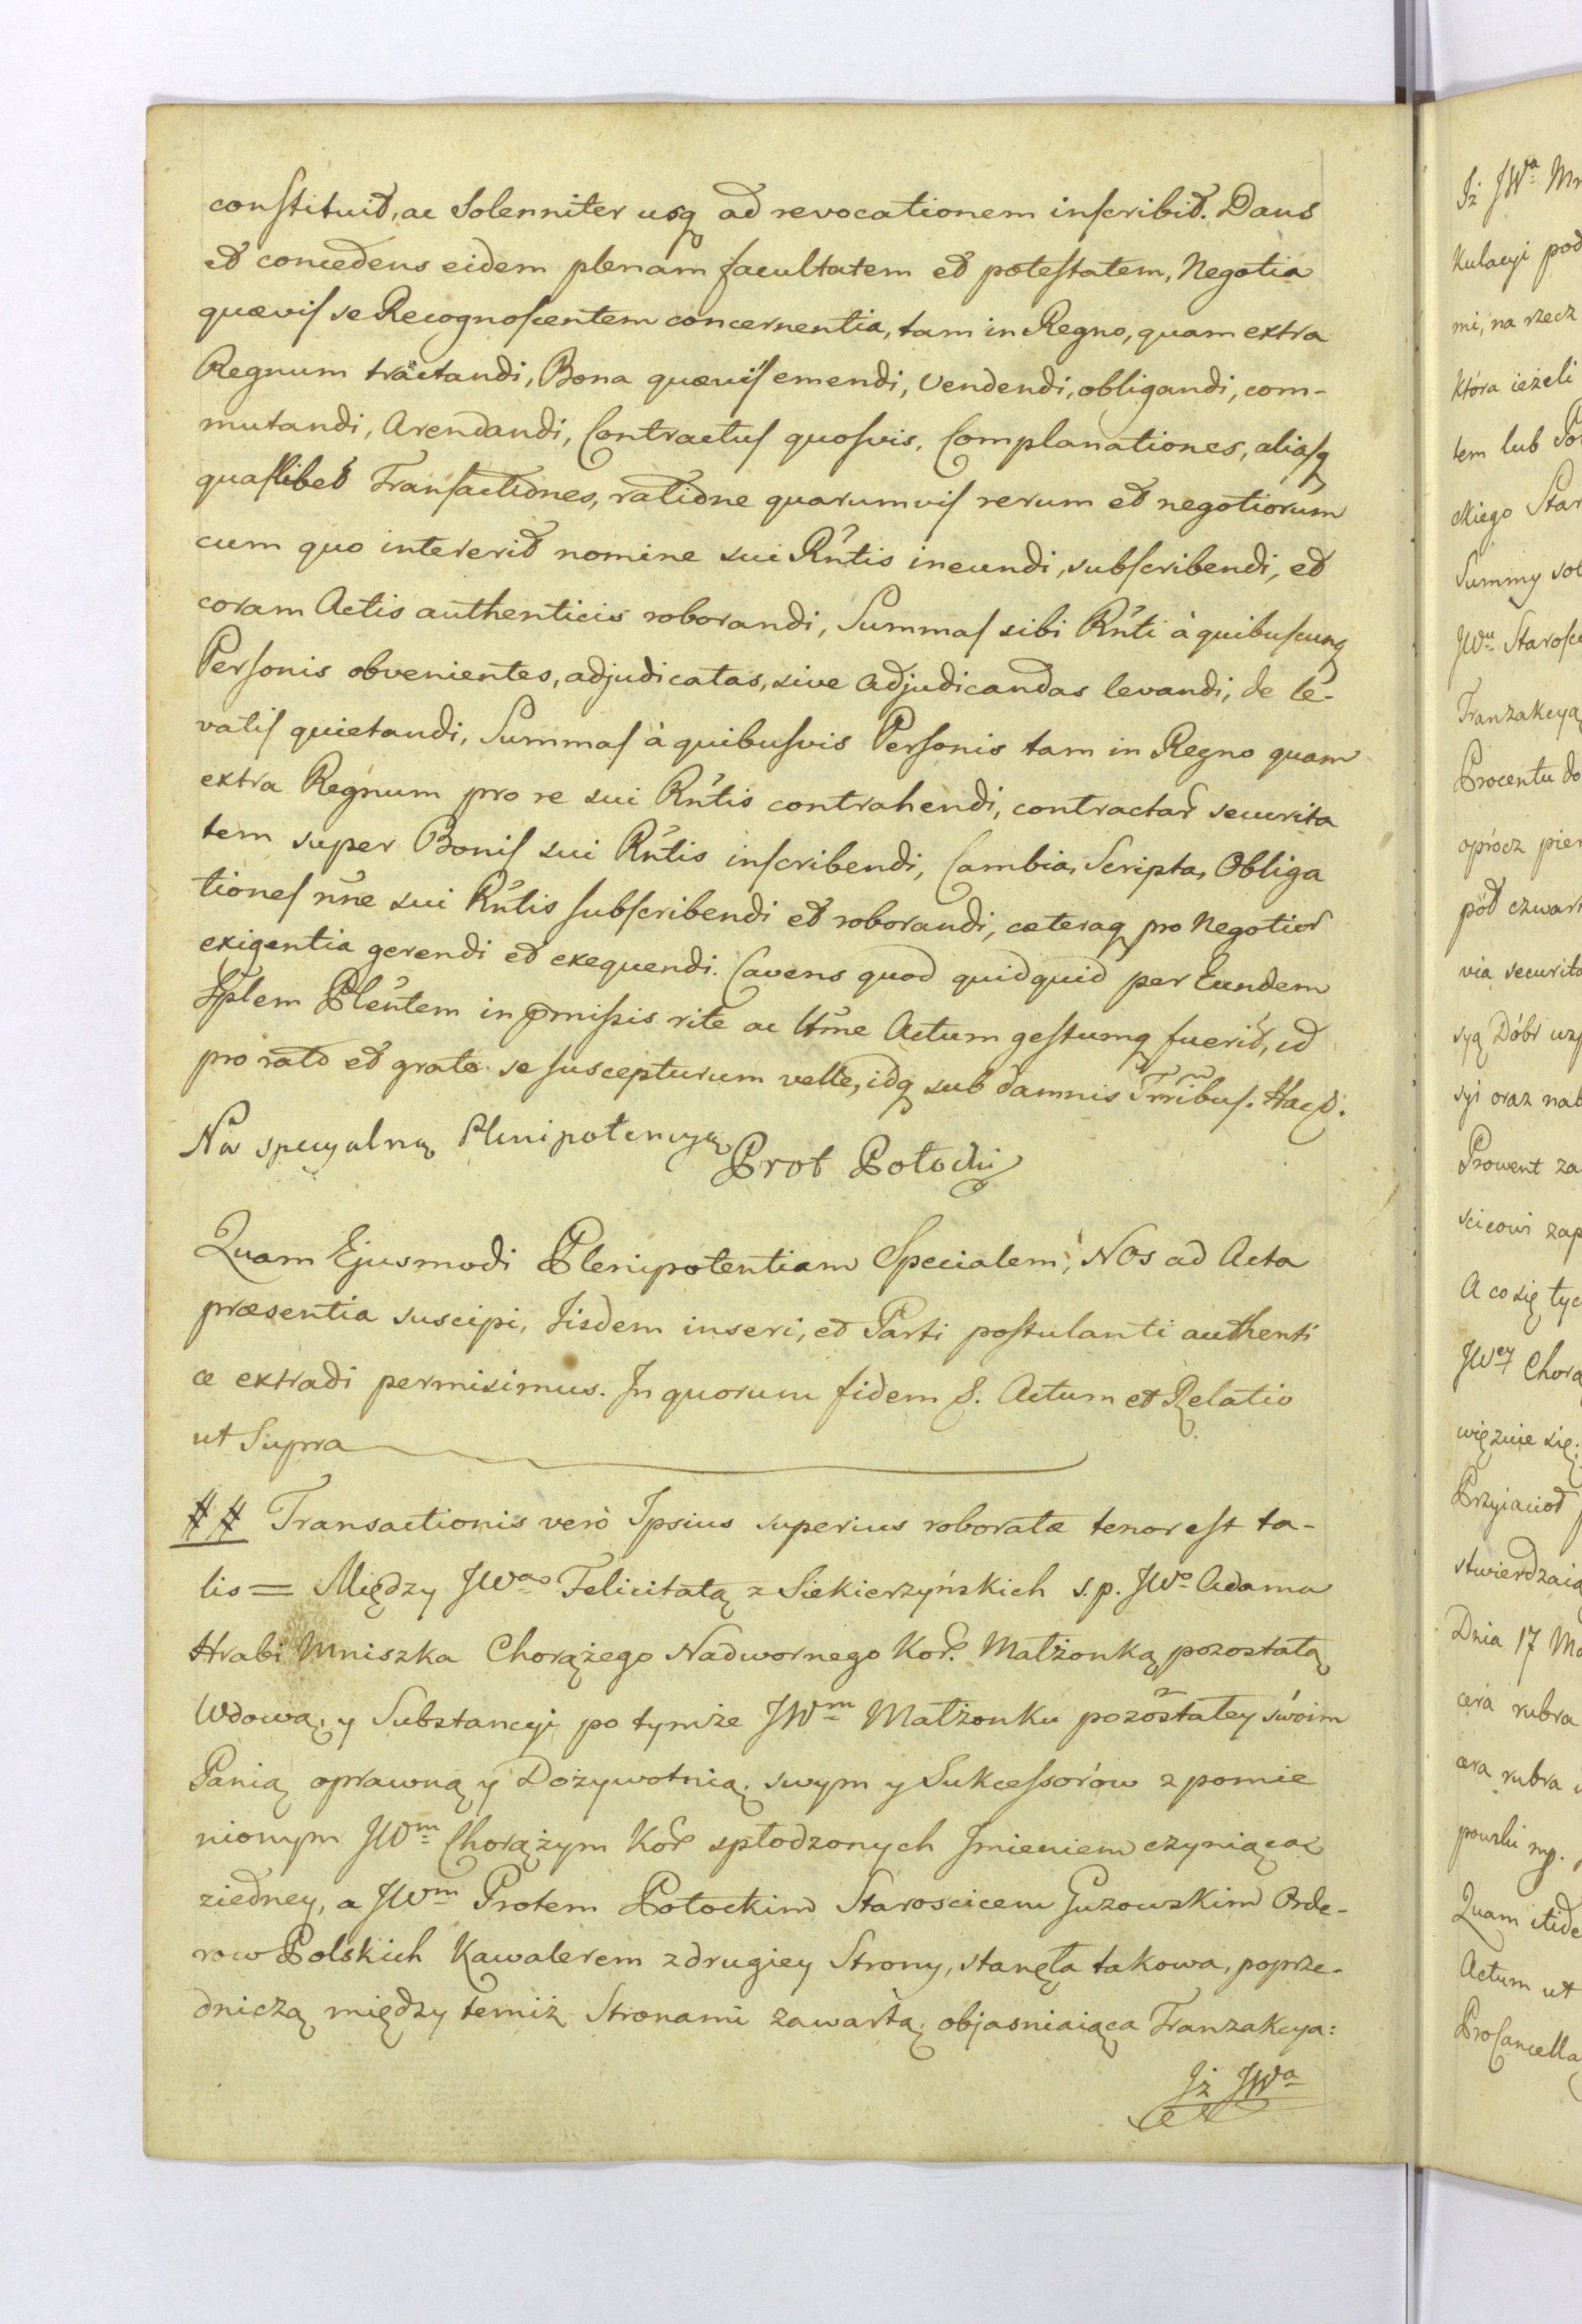 constituit, ac Solenniter usq ad revocationem inscribit. Dans
et concedens eidem plenam facultatem et potestatem, Negotia
quævis se Recognoscentem concernentia, tam in Regno, quam extra
Regnum tractandi, Bona quævis emendi, Vendendi, obligandi, com-
mutandi, Arendandi, Contractus quosvis, Complanationes, aliasq
quaslibet Transactiones, ratione quarumvis rerum et negotiorum
cum quo intererit nomine sui Rñtis ineundi, subscribendi, et
coram Actis authenticis roborandi, Summas sibi Rñti à quibuscunq
Personis obvenientes, adjudicatas, sive Adjudicandas levandi, de le-
vatis quietandi, Summas à quibusvis Personis tam in Regno quam
extra Regnum pro re sui Rñtis contrahendi, contractar securita
tem super Bonis sui Rñtis inscribendi, Cambia, Scripta, Obliga
tiones nñe sui Rñtis subscribendi et roborandi, cæteraq pro Negotior
exigentia gerendi et exequendi. Cavens quod quidquid per Eundem
Splem Pleñtem in pmissis rite ac ltme Actum gestumq fuerit, id
pro rato et grato se suscepturum velle, idq sub damnis Trribus. Hac &.
Na specyalną Plenipotencyą Prot Potocki
Quam Ejusmodi Plenipotentiam Specialem, NOs ad Acta
præsentia suscipi, Iisdem inseri, et Parti postulanti authenti
ce extradi permisimus. In quorum fidem &. Actum et Relatio
ut Supra
## Transactionis verò Ipsius superius roboratæ tenor est ta-
lis = Między JWą Felicitatą z Siekierzyńskich s.p. JWo Adama
Hrabi Mniszka Chorążego Nadwornego Kor. Małżonką pozostałą
Wdową, y Substancyi po tymże JWm Małżonku pozostałey swoim
Panią oprawną y Dożywotnią, swym y Sukcessorów z pomie
nionym JWm Chorążym Kor spłodzonych Imieniem czyniącą
ziedney, a JWm Protem Potockim Staroscicem Guzowskim Orde-
row Polskich Kawalerem zdrugiey Strony, stanęła takowa, poprze-
dniczą między temiż Stronami zawartą objasniaiąca Tranzakcya:
Iż JWa
Iż JWa Mn
kulacyi pod
mi, na rzecz
która ieżeli
tem lub Po
Summy
JWu Starosc
Tranzakcyą
Procentu do
oprócz pier
pod czwart
via securita
syą Dóbr
syi oraz nab
Prowent za
scicowi zap
A co się tyc
JWey Chorą
Przyiaciół
stwierdzaią
Dnia 17 Ma
cera rubra
powski mp.
Quam itide
Actum ut
ProCancella